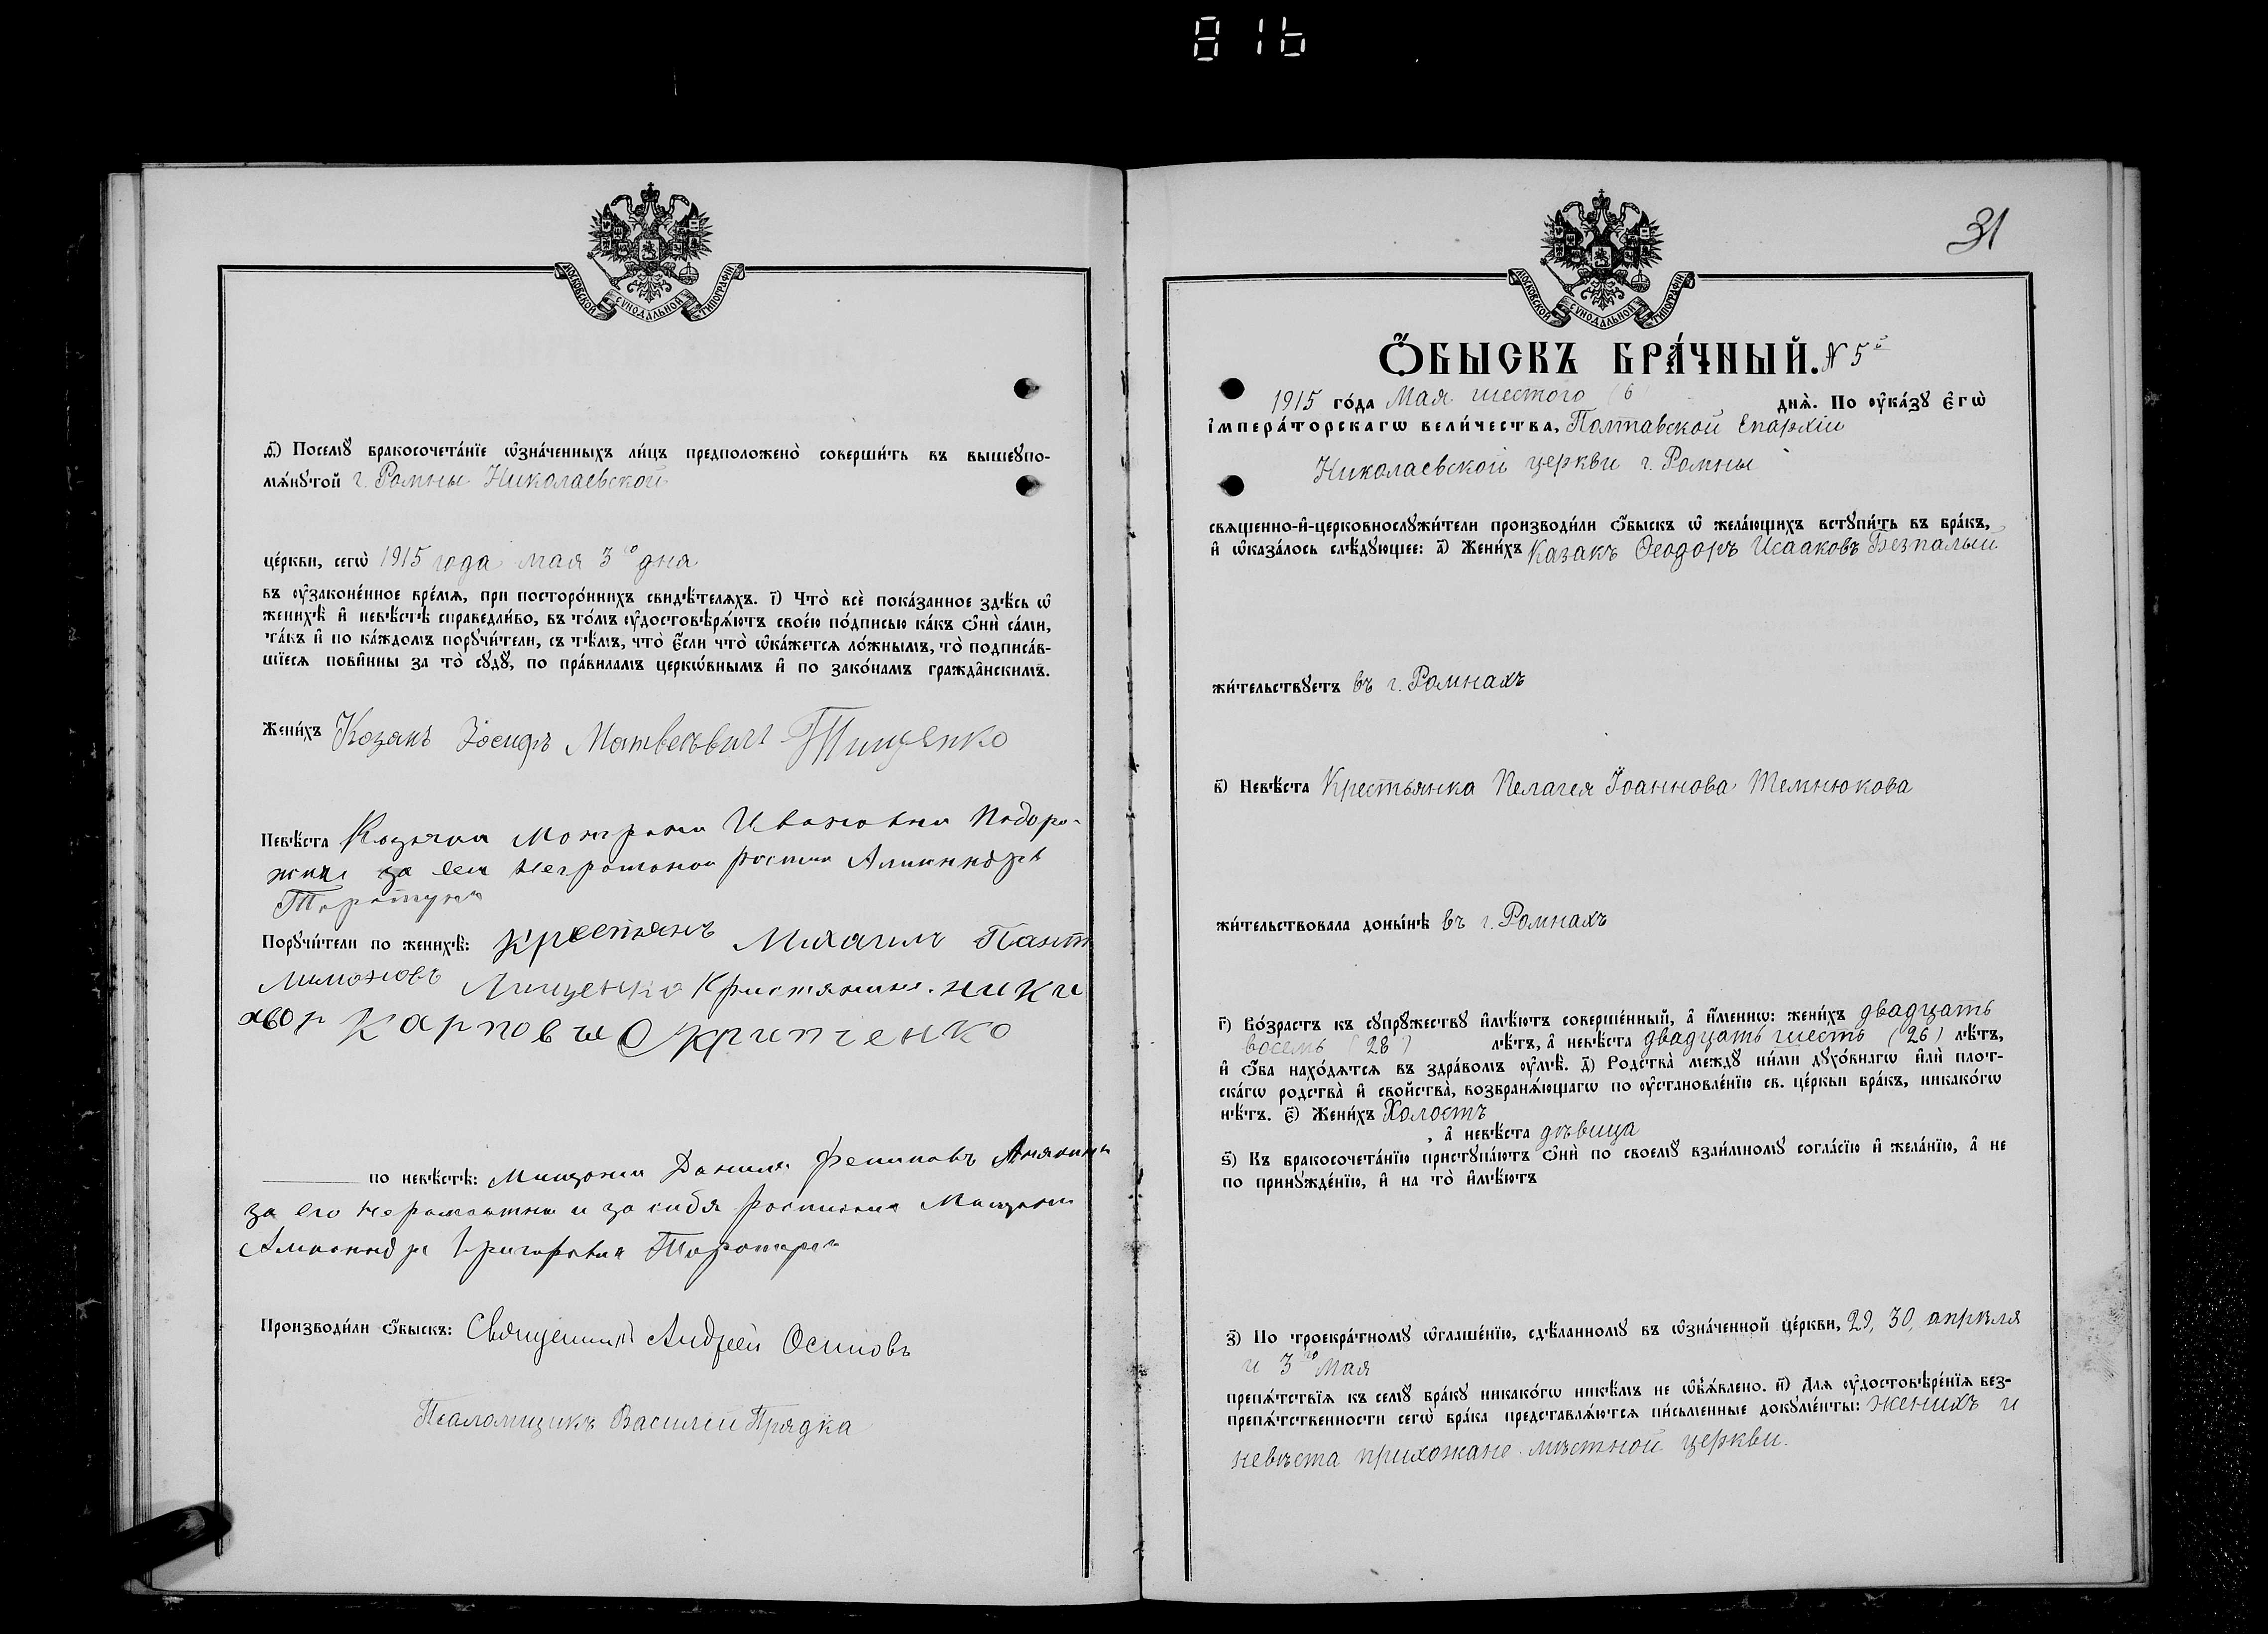 816
МОСКОВСКОЙ СѴНОДАЛЬНОЙ ТИПОГРАФІИ
ѳ҃) Посемꙋ̀ бракосочета́нїе ѡ҆зна́ченныхъ ли́цъ предположено̀ соверши́ть въ вышеꙋпо-
мѧ́нꙋтой г. Ромны Николаевской
це́ркви, сегѡ̀ 1915 года мая 3го дня
въ ᲂу҆законе́нное вре́мѧ, при посторо́ннихъ свидѣ́телѧхъ. і҃) Что̀ всѐ пока́занное здѣ́сь ѡ҆
женихѣ̀ и҆ невѣ́стѣ справедли́во, въ то́мъ ᲂу҆достовѣрѧ́ютъ свое́ю по́дписью ка́къ ѻ҆нѝ са́ми,
та́къ и҆ по ка́ждомъ порꙋчи́тели, съ тѣ́мъ, что̀ є҆́сли что̀ ѡ҆ка́жетсѧ ло́жнымъ, то̀ подписа́в-
шїесѧ пови́нны за то̀ сꙋдꙋ̀, по пра́виламъ церко́внымъ и҆ по зако́намъ гражда̑нскимъ.
Жени́хъ Козакъ Іосифъ Матвеевичъ Тищенко
Невѣ́ста Козачка Ивановна Подоро-
жная за ее неграмотной
Порꙋчи́тели по женихѣ̀: Крестянъ Михаилъ Пант
Лимоновъ Лищенко Кристянинъ. Ники
хвор Карпович Скрипченко
по невѣ́стѣ: Мищанин Данила
за его неграмотни и за себя Мищанин
Григорьевич
Производи́ли ѻ҆́быскъ: Священникъ Андрей Осиповъ
Псаломщикъ Василій Прядка
31
МОСКОВСКОЙ СѴНОДАЛЬНОЙ ТИПОГРАФІИ
Ѻ҆́БЫСКЪ БРА́ЧНЫЙ. N 5й
1915 го́да Мая шестого (6) днѧ̀. По ᲂу҆ка́зꙋ є҆гѡ̀
і҆мпера́торскагѡ вели́чества, Полтавской Епархіи
Николаевской церкви г. Ромны
свѧщенно-и҆-церковнослꙋжи́тели производи́ли ѻ҆́быскъ ѡ҆ жела́ющихъ встꙋпи́ть въ бра́къ,
и҆ ѡ҆каза́лось слѣ́дꙋющее: а҃) Жени́хъ Казакъ Ѳеодоръ Исааковъ Безпалый
жи́тельствꙋетъ въ г. Ромнахъ
в҃) Невѣ́ста Крестьянка Пелагея Іоаннова Темнюкова
жи́тельствовала доны́нѣ въ г. Ромнахъ
г҃) Во́зрастъ къ сꙋпрꙋ́жествꙋ и҆мѣ́ютъ соверше́нный, а҆ и҆́менно: жени́хъ двадцать
восемь (28) лѣ́тъ, а҆ невѣ́ста двадцать шесть (26) лѣ́тъ,
и҆ ѻ҆́ба нахо́дѧтсѧ въ здра́вомъ ᲂу҆мѣ̀. д҃) Родства̀ междꙋ ни́ми дꙋхо́внагѡ и҆лѝ плот-
ска́гѡ родства̀ и҆ свойства̀, возбранѧ́ющагѡ по ᲂу҆становле́нїю св. це́ркви бра́къ, никако́гѡ
нѣ́тъ. є҃) Жени́хъ Холостъ
, а҆ невѣ́ста дѣвица
ѕ҃) Къ бракосочета́нїю пристꙋпа́ютъ ѻ҆нѝ по своемꙋ̀ взаи́мномꙋ согла́сїю и҆ жела́нїю, а҆ не
по принꙋжде́нїю, и҆ на то̀ и҆мѣ́ютъ
з҃) По троекра́тномꙋ ѡ҆глаше́нїю, сдѣ́ланномꙋ въ ѡ҆зна́ченной це́ркви, 29, 30, апрѣля
и 3го Мая
препѧ́тствїѧ къ семꙋ̀ бра́кꙋ никако́гѡ никѣ́мъ не ѡ҆б̾ѧ́влено. и҃) Длѧ ᲂу҆достовѣре́нїѧ без-
препѧ́тственности сегѡ̀ бра́ка представлѧ́ютсѧ пи́сьменные докꙋме́нты: женихъ и
невѣста прихожане мѣстной церкви.